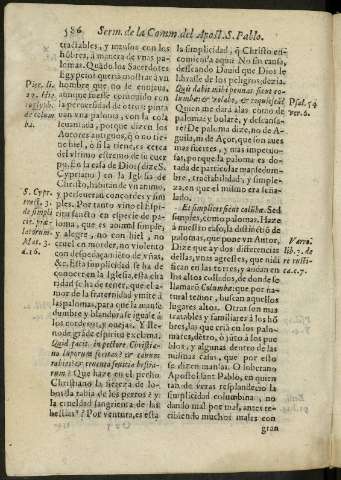 586 Serm. de la Comm. del Apost. S. Pablo.
tractables, y mansos con los
hõbres, à manera de vnas pa-
lomas. Quãdo los Sacerdotes
Egypcios querià mostrar à vn
hombre que no se enojaua,
aunque fuesse comouido con
la peruersidad de otro: pintà
van vna paloma, con la cola
leuantada, porque dizen los
Autores antiguos, q̃ ò no tie
ne hiel, ò si la tiene, es cerca
del vltimo estremo de su cuer
po. En la casa de Dios (dize S.
Cypriano) en la Iglesia de
Christo, habitan de vn animo,
y perseueran concordes y sim
ples. Por tanto vino el Espi-
ritu santo en especie de pa-
loma, que es animal simple,
y alegre, no con hiel, no
cruel en morder, no violento
con despedaçamiẽto de vñas,
&c. Esta simplicidad se ha de
conocer en la Iglesia, esta cha
ridad se ha de tener, que el a-
mor de la fraternidad ymite à
las palomas, para que la manse
dumbre y blandura se iguale à
los corderos, y ouejas. Y lle-
no de grãde espiritu exclama:
Quid facit in pectore Christia-
no luporum feritas? & canum
rabies? & cruenta sæuitia bestia-
rum? Que haze en el pecho
Christiano la fiereza de lo-
bos, la rabia de los perros? y
la crueldad sangrienta de las
bestias? Por ventura, es esta
Pier. li.
22. hie-
roglyph.
de colum
ba.
S. Cypr.
tract. 3.
de simpli
cit. præ-
latorum.
Mat. 3.
d. 16.
la simplicidad, q̃ Christo en-
comienda aqui? No sin causa,
desseando Dauid que Dios le
librasse de los peligros, dezia.
Quis dabit mihi pennas sicut co-
lumbæ: & volabo, & requiescã?
Quien me darà alas como de
paloma; y bolarè, y descansa-
re? De paloma dize, no de A-
guila, ni de Açor, que son aues
mas fuertes, y mas impetuo-
sas, porque la paloma es do-
tada de particular mansedum-
bre, tractabilidad, y simple-
za, en que el mismo era seña-
lado.
Et simplices sicut colũbæ. Sed
simples, como palomas. Haze
à nuestro caso, la distinctiõ de
palomas, que pone vn Autor.
Dize que ay dos differencias
dellas, vnas agrestes, que nidi
fican en las torres, y andan en
los altos collados, de donde se
llamarõ Columbæ: que por na-
tural temor, buscan aquellos
lugares altos. Otras son mas
tractables y familiares à los hõ
bres, las que crià en los palo-
mares, dẽtro, ò jũto à los pue
blos, y algunas dentro de las
mismas casas, que por esto
se dizen mansas. O soberano
Apostol sant Pablo, en quien
tan de veras resplandecio la
simplicidad columbina, no
dando mal por mal, antes re-
cibiendo muchos males con
gran
Psal. 54
ver. 6.
Varro
lib. 7. de
re rusti-
ca. c. 7.